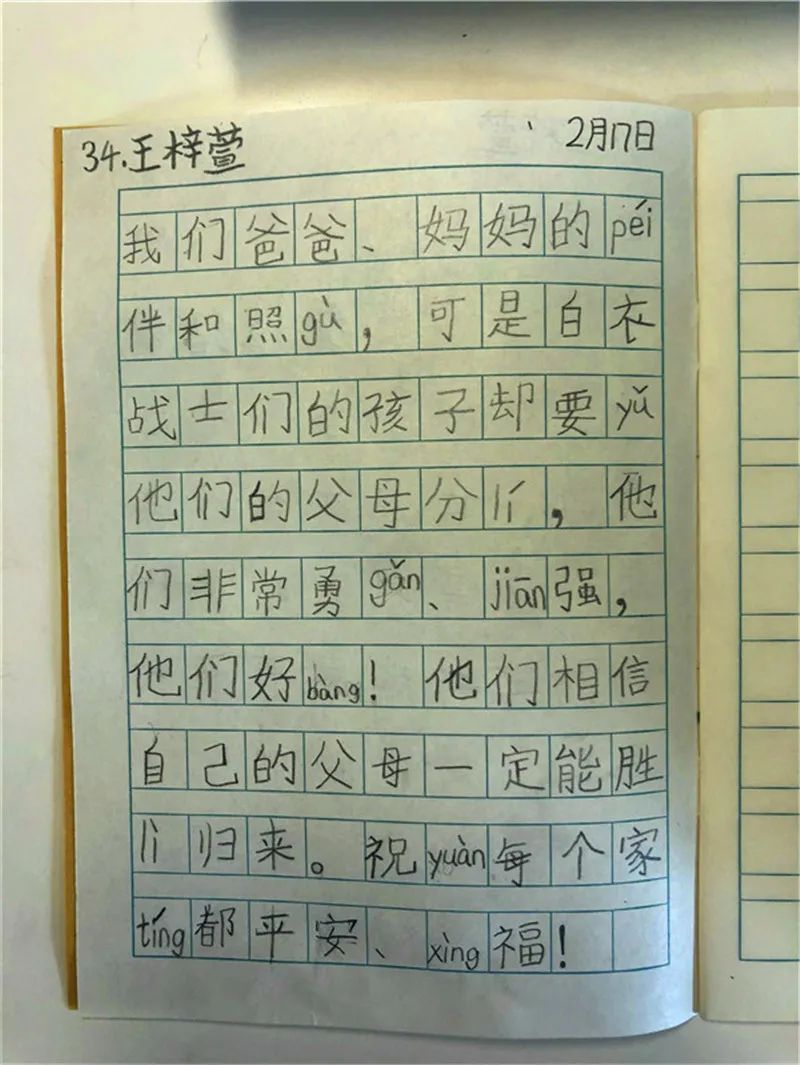 34.王梓萱 2月17日
我们爸爸、妈妈的péi
伴和照gù，可是白衣
战士们的孩子却要yǔ
他们的父母分lí，他
们非常勇gǎn、jiān强，
他们好bàng！他们相信
自己的父母一定能胜
lì归来。祝yuàn每个家
tíng都平安、xìng福！